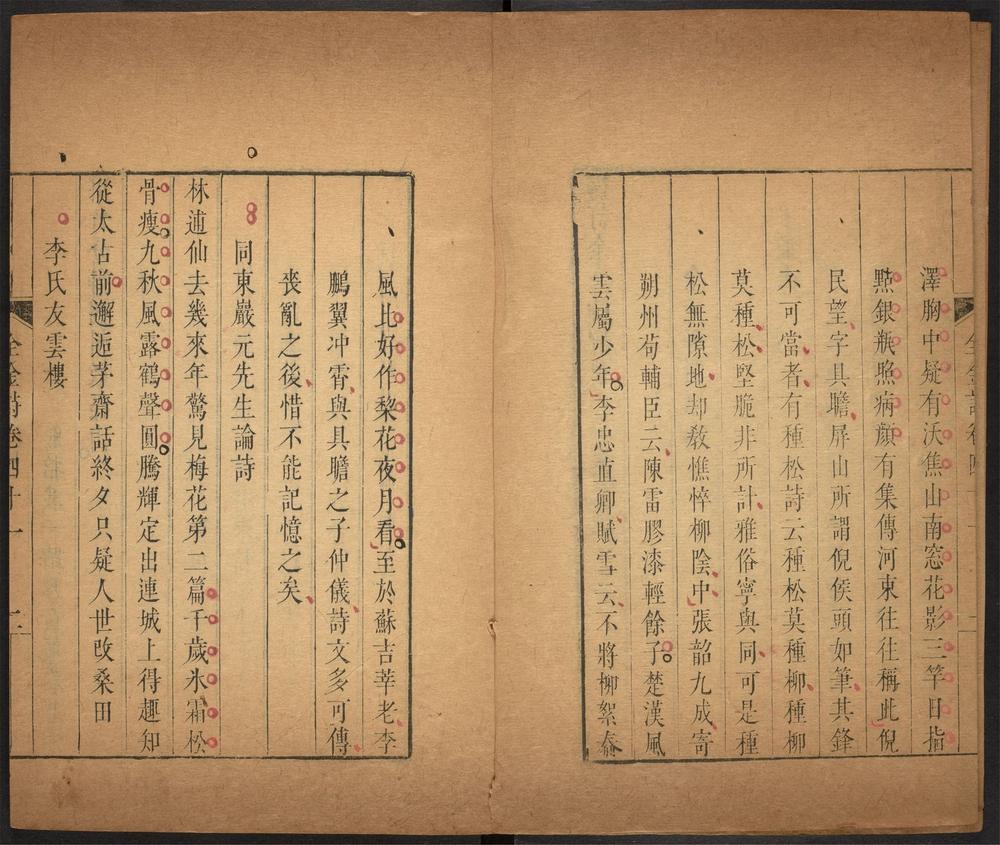 澤胸中疑有沃焦山南窓花影三竿日指
㸃銀瓶照病顔有集傳河東往往稱此倪
民望字具瞻屏山所謂倪侯頭如筆其鋒
不可當者有種松詩云種松莫種柳種柳
莫種松堅脆非所計雅俗寧與同可是種
松無隙地却敎憔悴柳陰中張韶九成寄
朔州荀輔臣云陳雷膠漆輕餘子楚漢風
雲屬少年李忠直卿賦雪云不將柳絮春
風比好作棃花夜月看至於蘇吉莘老李
鵬翼冲霄與具瞻之子仲儀詩文多可傳
喪亂之後惜不能記憶之矣
同東巖元先生論詩
林逋仙去幾來年驚見梅花第二篇千歲氷霜松
骨瘦九秋風露鶴聲圓騰輝定出連城上得趣知
從太古前邂逅茅齋話終夕只疑人世改桑田
李氏友雲樓
全金詩卷四十一 二